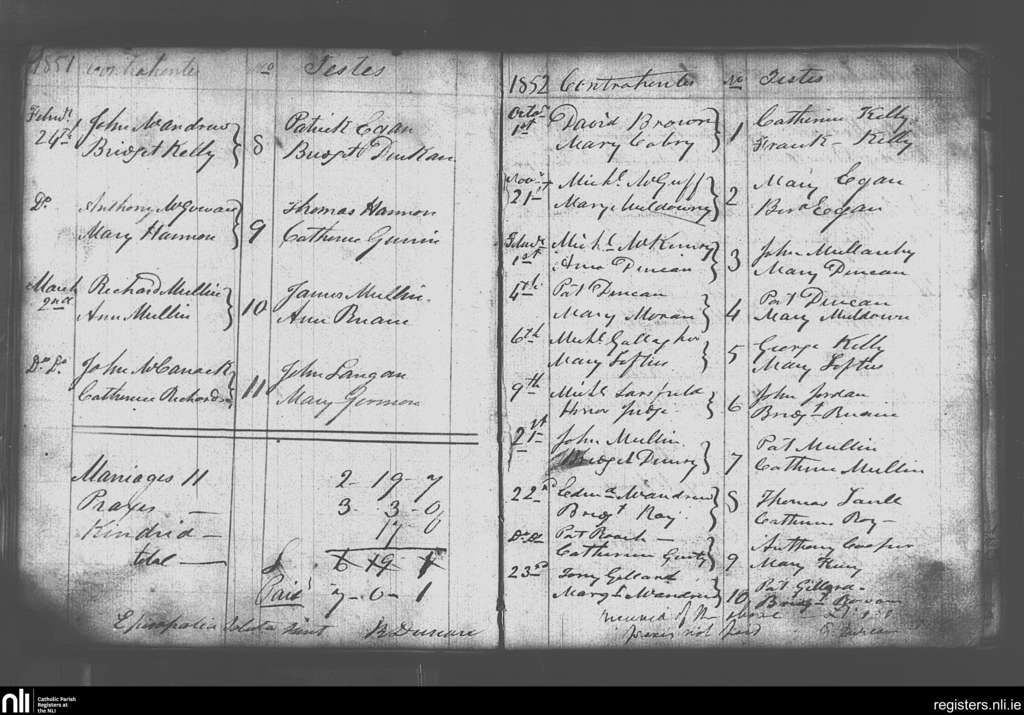 1851 Contrahentes No Testes
Februy 24th John McAndrew } 8 Patrick Egan
Bridget Kelly Bridget Dunkan
Do Anthony McGowan } 9 Thomas Hannon
Mary Hannon Catherine
March 2nd Richard Mullin } 10 James Mullin
Ann Mullin Ann Ruane
Do Do John McCanack } 11 John Langan
Catherine Richardson Mary
Marriages 11 2-19-7
3-3-0
Kindrid - 17-0
total - £ 6 19 1
Paid 7-0-1
Episcopalia soluta sunt B Duncan
1852 Contrahentes No Testes
Octor 1st David Brown } 1 Catherine Kelly
Mary Cabry Frank Kelly
Novr 21st Michl McGuff } 2 Mary Egan
Mary Muldowny Egan
Februy 1st Michl McKinny } 3 John Mullawhy
Anne Duncan Mary Duncan
4th Pat Duncan } 4 Pat Duncan
Mary Moran Mary Muldown
6th Michl Gallagher } 5 George Kelly
Mary Loftus Mary Loftus
9th Michl Sarsfield } 6 John Jordan
Judge Bridgt Ruane
21st John Mullin } 7 Pat Mullin
Bridget Catherine Mullin
22nd Edmd McAndrew } 8 Thomas
Bridgt Roy Catherine Roy
Do Do Pat Roach } 9 Anthony Cooper
Catherine Mary
23rd Tony Gillard } 10 Pat Gillard
Mary McAndrew Bridgt
received of the above
not paid B Duncan
nli
Catholic Parish
Registers at
the NLI
registers.nli.ie